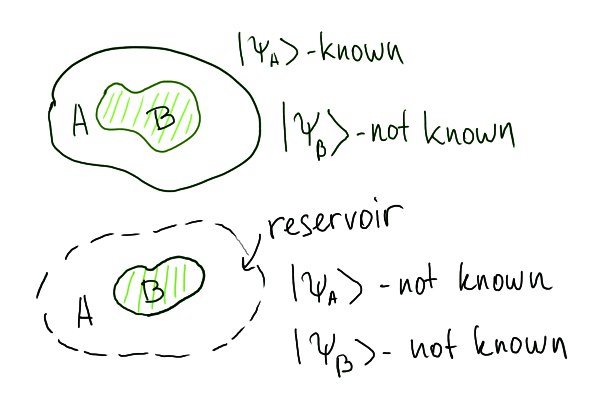 |Ψ_A⟩-known
A B
|Ψ_B⟩-not known
reservoir
A B
|Ψ_A⟩ -not known
|Ψ_B⟩- not known